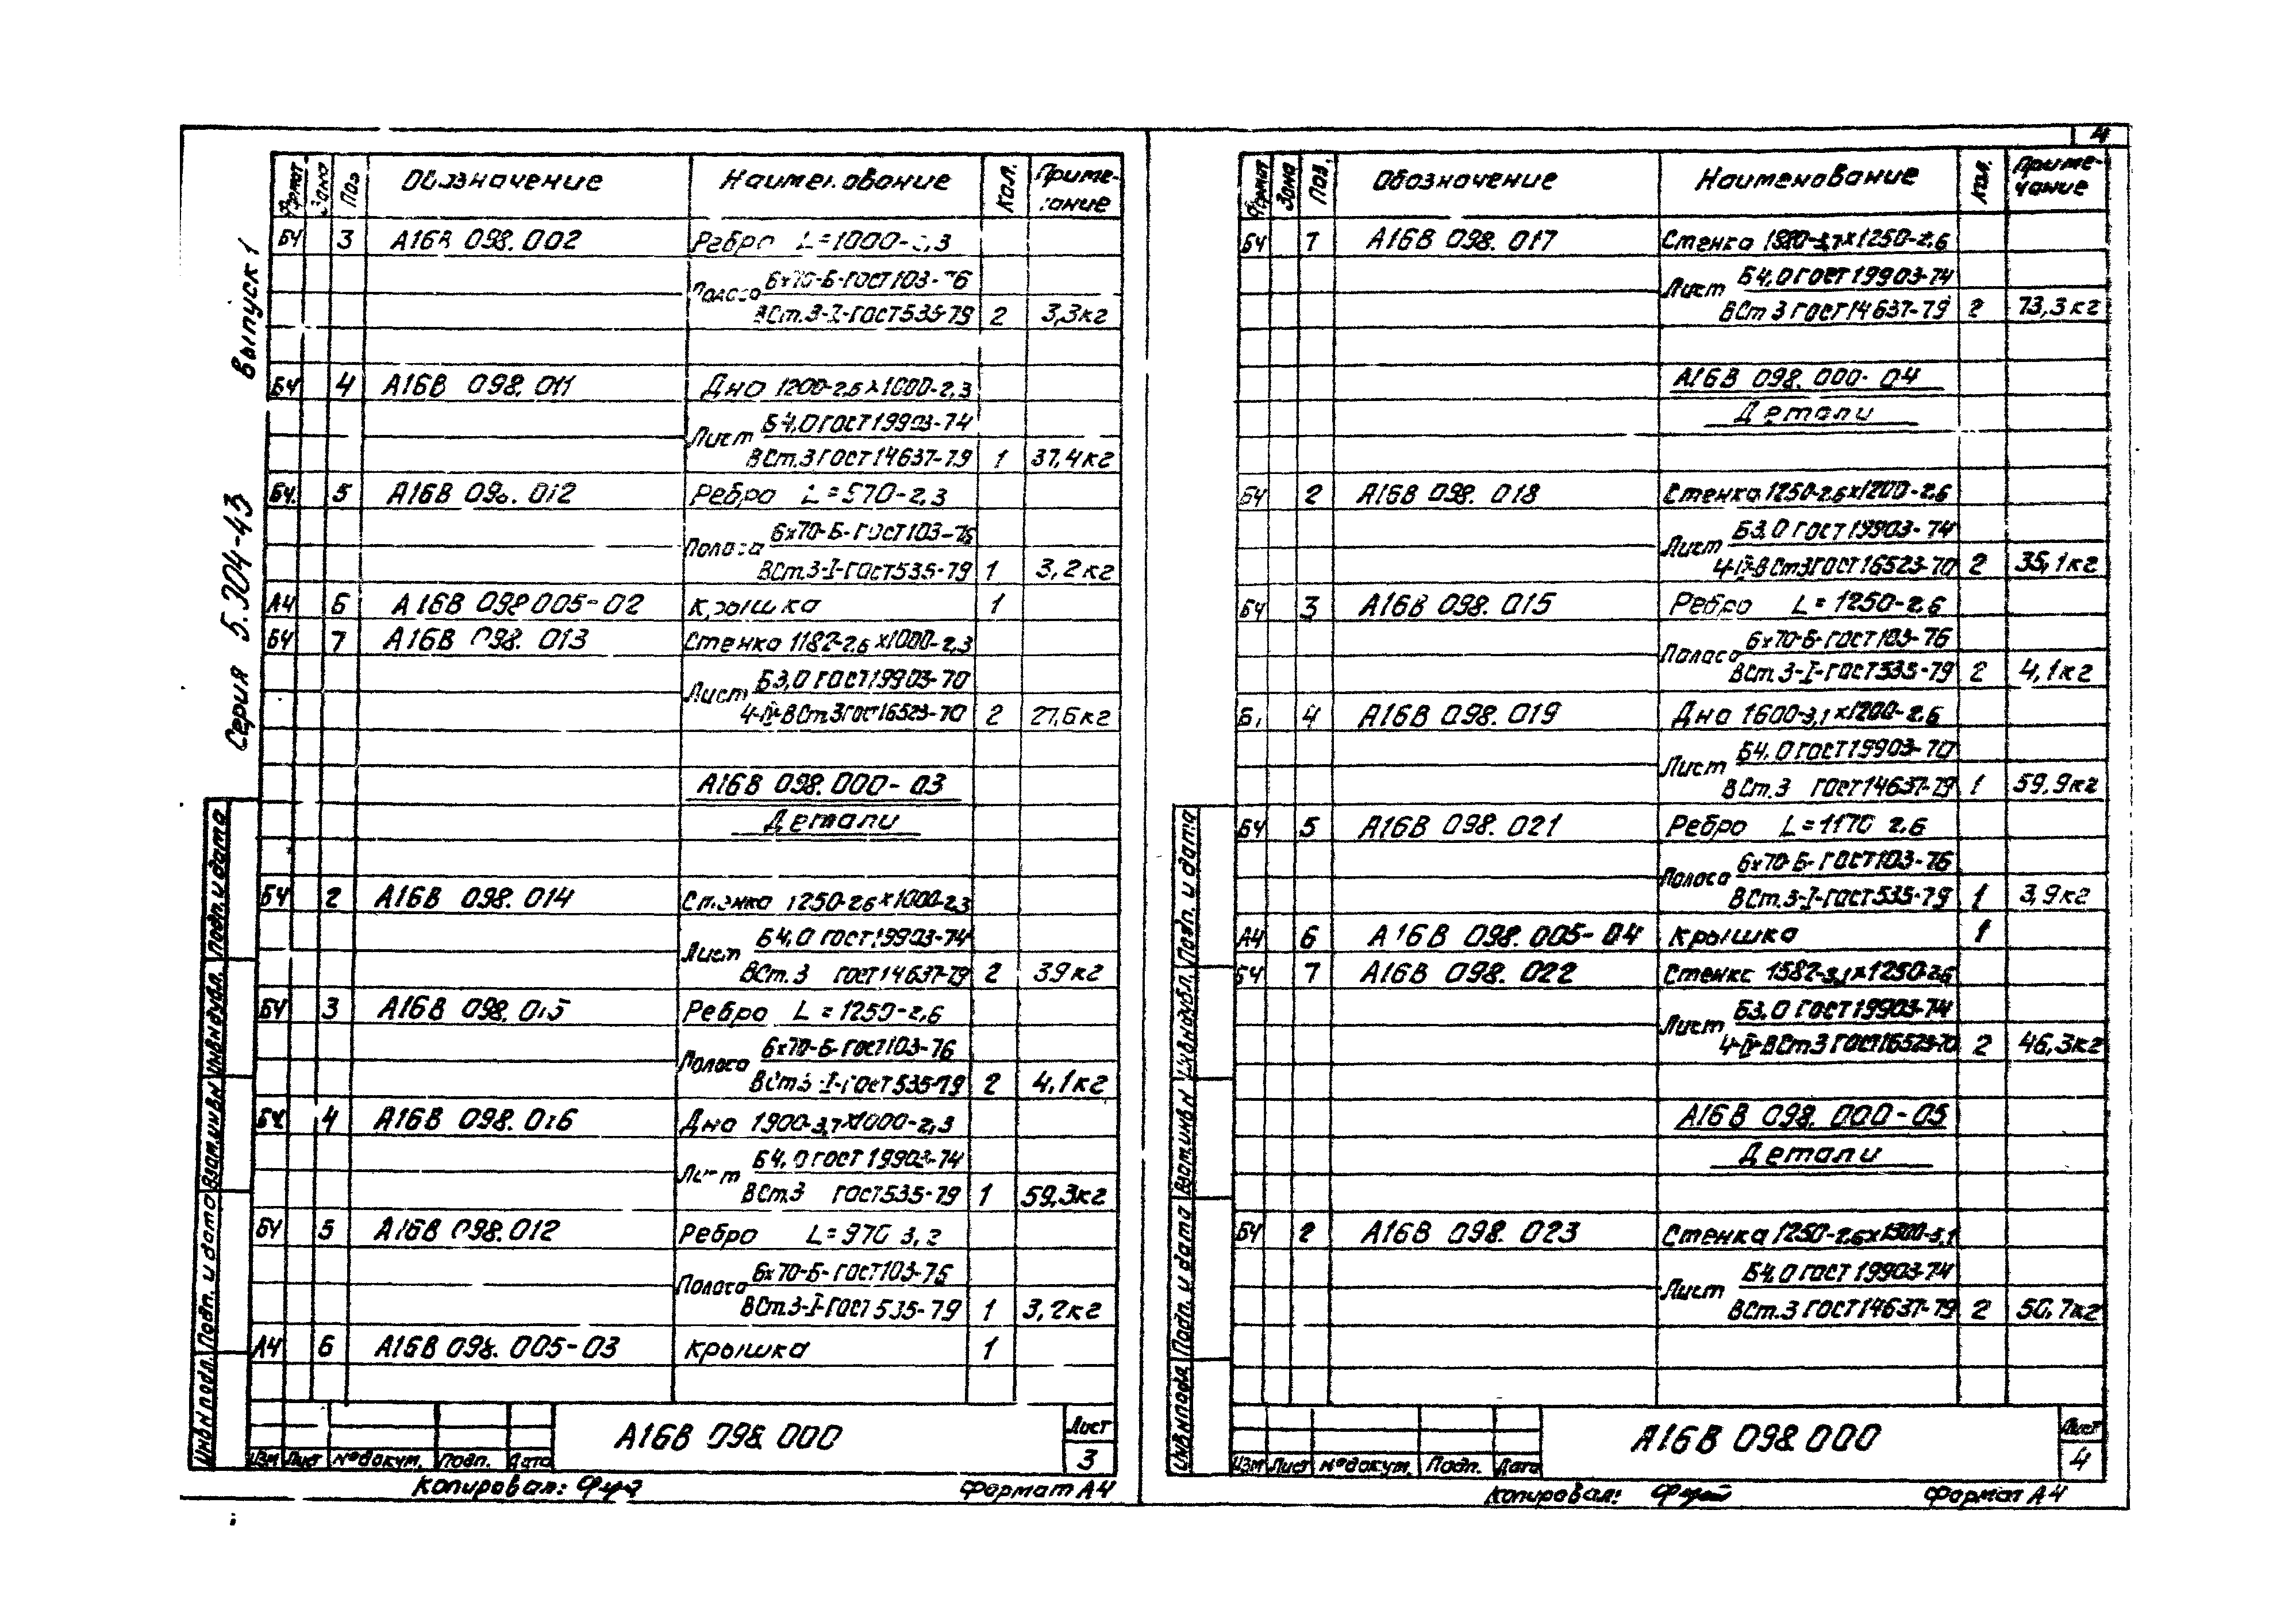 4
Выпуск 1
Серия 5.904-43
Формат Зона Поз Обозначение Наименование Кол. Приме-
чание
БЧ 3 А16В 098.002 Ребро L=1000-2,3
6х70-Б-ГОСТ103-76
Полоса
ВСт.3-I-ГОСТ535-79 2 3,3кг
БЧ 4 А16В 098.011 Дно 1200-2,6х1000-2,3
Б4,0 ГОСТ19903-74
Лист
ВСт.3 ГОСТ14637-79 1 37,4кг
БЧ. 5 А16В 098.012 Ребро L=570-2,3
6х70-Б-ГОСТ103-76
Полоса
ВСт.3-I-ГОСТ535-79 1 3,2кг
А4 6 А16В 098 005-02 Крышка 1
БЧ 7 А16В 098.013 Стенка 1182-2,6х1000-2,3
Б3,0 ГОСТ19903-70
Лист
4-IV-ВСт3ГОСТ16523-70 2 27,6кг
А16В 098.000-03
Детали
БЧ 2 А16В 098.014 Стенка 1250-2,6х1000-2,3
Б4,0 ГОСТ19903-74
Лист
ВСт.3 ГОСТ14637-79 2 39кг
БЧ 3 А16В 098.015 Ребро L=1250-2,6
6х70-Б-ГОСТ103-76
Полоса
ВСт3-I-ГОСТ535-79 2 4,1кг
БЧ 4 А16В 098.016 Дно 1900-3,7х1000-2,3
Б4,0 ГОСТ 19903-74
Лист
ВСт.3 ГОСТ535-79 1 59,3кг
БЧ 5 А16В 098.012 Ребро L=970 3,2
6х70-Б-ГОСТ103-76
Полоса
ВСт.3-I-ГОСТ535-79 1 3,2кг
А4 6 А16В 098.005-03 Крышка 1
Инв№подл. Подп. и дата Взам.инв№ Инв№дубл. Подп. и дата
Изм Лист №докум. Подп. Дата
А16В 098 000
Лист
3
Копировал:
Формат А4
Формат Зона Поз. Обозначение Наименование Кол. Приме-
чание
БЧ 7 А16В 098.017 Стенка 1880-3,7х1250-2,6
Б4,0 ГОСТ19903-74
Лист
ВСт 3 ГОСТ14637-79 2 73,3кг
А16В 098.000-04
Детали
БЧ 2 А16В 098.018 Стенка 1250-2,6х1200-2,6
Б3,0 ГОСТ19903-74
Лист
4-IV-ВСт3ГОСТ16523-70 2 35,1кг
БЧ 3 А16В 098.015 Ребро L=1250-2,6
6х70-Б-ГОСТ103-76
Полоса
ВСт.3-I-ГОСТ535-79 2 4,1кг
4 А16В 098.019 Дно 1600-3,1х1200-2,6
Б4,0 ГОСТ19903-70
Лист
ВСт.3 ГОСТ14637-79 1 59,9кг
БЧ 5 А16В 098.021 Ребро L=1170 2,6
6х70-Б-ГОСТ103-76
Полоса
ВСт.3-I-ГОСТ535-79 1 3,9кг
А4 6 А16В 098.005-04 Крышка 1
БЧ 7 А16В 098.022 Стенка 1582-3,1х1250-2,6
Б3,0 ГОСТ19903-74
Лист
4-IV-ВСт3 ГОСТ16523-70 2 46,3кг
А16В 098.000-05
Детали
БЧ 2 А16В 098.023 Стенка 1250-2,6х1300-3,1
Б4,0 ГОСТ 19903-74
Лист
ВСт.3 ГОСТ14637-79 2 50,7кг
Инв№подл. Подп. и дата Взам.инв№ Инв№дубл. Подп. и дата
Изм Лист №докум. Подп. Дата
А16В 098 000
Лист
4
Копировал:
Формат А4